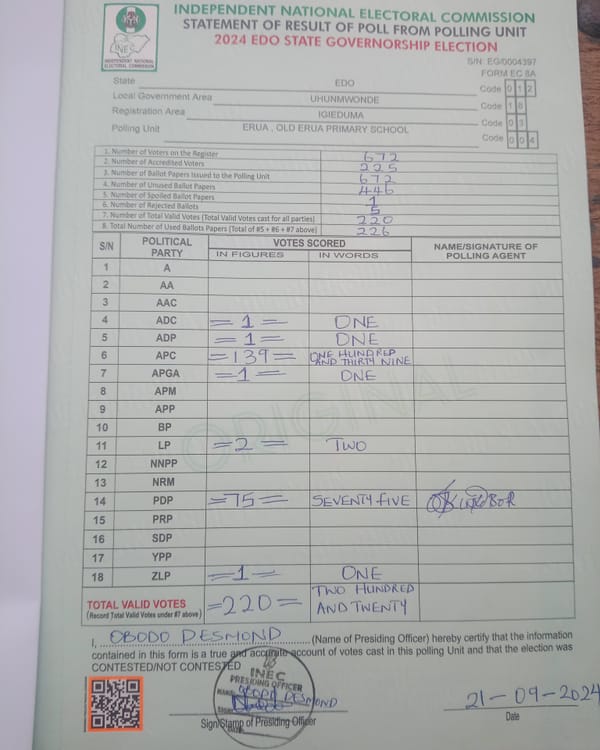 INDEPENDENT NATIONAL ELECTORAL COMMISSION
STATEMENT OF RESULT OF POLL FROM POLLING UNIT
2024 EDO STATE GOVERNORSHIP ELECTION
INEC
INDEPENDENT NATIONAL
ELECTORAL COMMISSION
S/N: EG/0004397
FORM EC 8A
State EDO Code 0 1 2
Local Government Area UHUNMWONDE Code 1 8
Registration Area IGIEDUMA Code 0 3
Polling Unit ERUA , OLD ERUA PRIMARY SCHOOL Code 0 0 4
1. Number of Voters on the Register 672
2. Number of Accredited Voters 225
3. Number of Ballot Papers Issued to the Polling Unit 672
4. Number of Unused Ballot Papers 446
5. Number of Spoiled Ballot Papers 1
6. Number of Rejected Ballots 5
7. Number of Total Valid Votes (Total Valid Votes cast for all parties) 220
8. Total Number of Used Ballots Papers (Total of #5 + #6 + #7 above) 226
S/N POLITICAL PARTY VOTES SCORED NAME/SIGNATURE OF POLLING AGENT
IN FIGURES IN WORDS
1 A
2 AA
3 AAC
4 ADC =1= ONE
5 ADP =1= ONE
6 APC =139= ONE HUNDRED AND THIRTY NINE
7 APGA =1= ONE
8 APM
9 APP
10 BP
11 LP =2= TWO
12 NNPP
13 NRM
14 PDP =75= SEVENTY FIVE
15 PRP
16 SDP
17 YPP
18 ZLP =1= ONE
TOTAL VALID VOTES =220= TWO HUNDRED AND TWENTY
(Record Total Valid Votes under #7 above)
ORIGINAL
I, OBODO DESMOND (Name of Presiding Officer) hereby certify that the information
contained in this form is a true and accurate account of votes cast in this polling Unit and that the election was
CONTESTED/NOT CONTESTED
INEC
PRESIDING OFFICER
OBODO DESMOND
21-09-2024
Sign/Stamp of Presiding Officer
Date